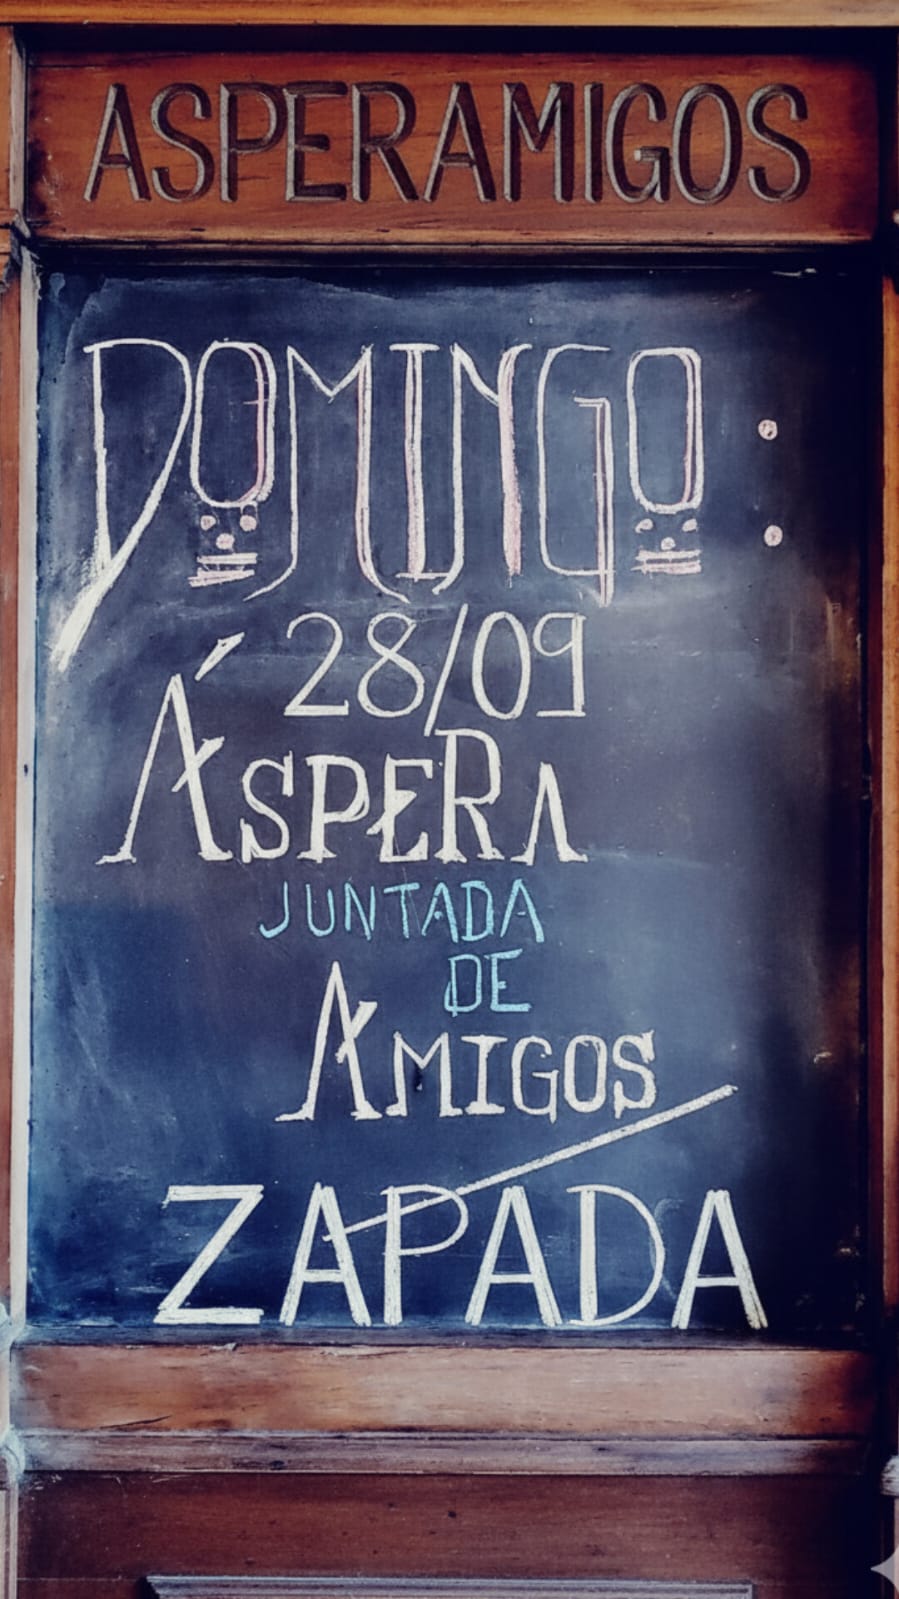 ASPERAMIGOS
DOMINGO:
28/09
ÁSPERA
JUNTADA
DE
AMIGOS
ZAPADA